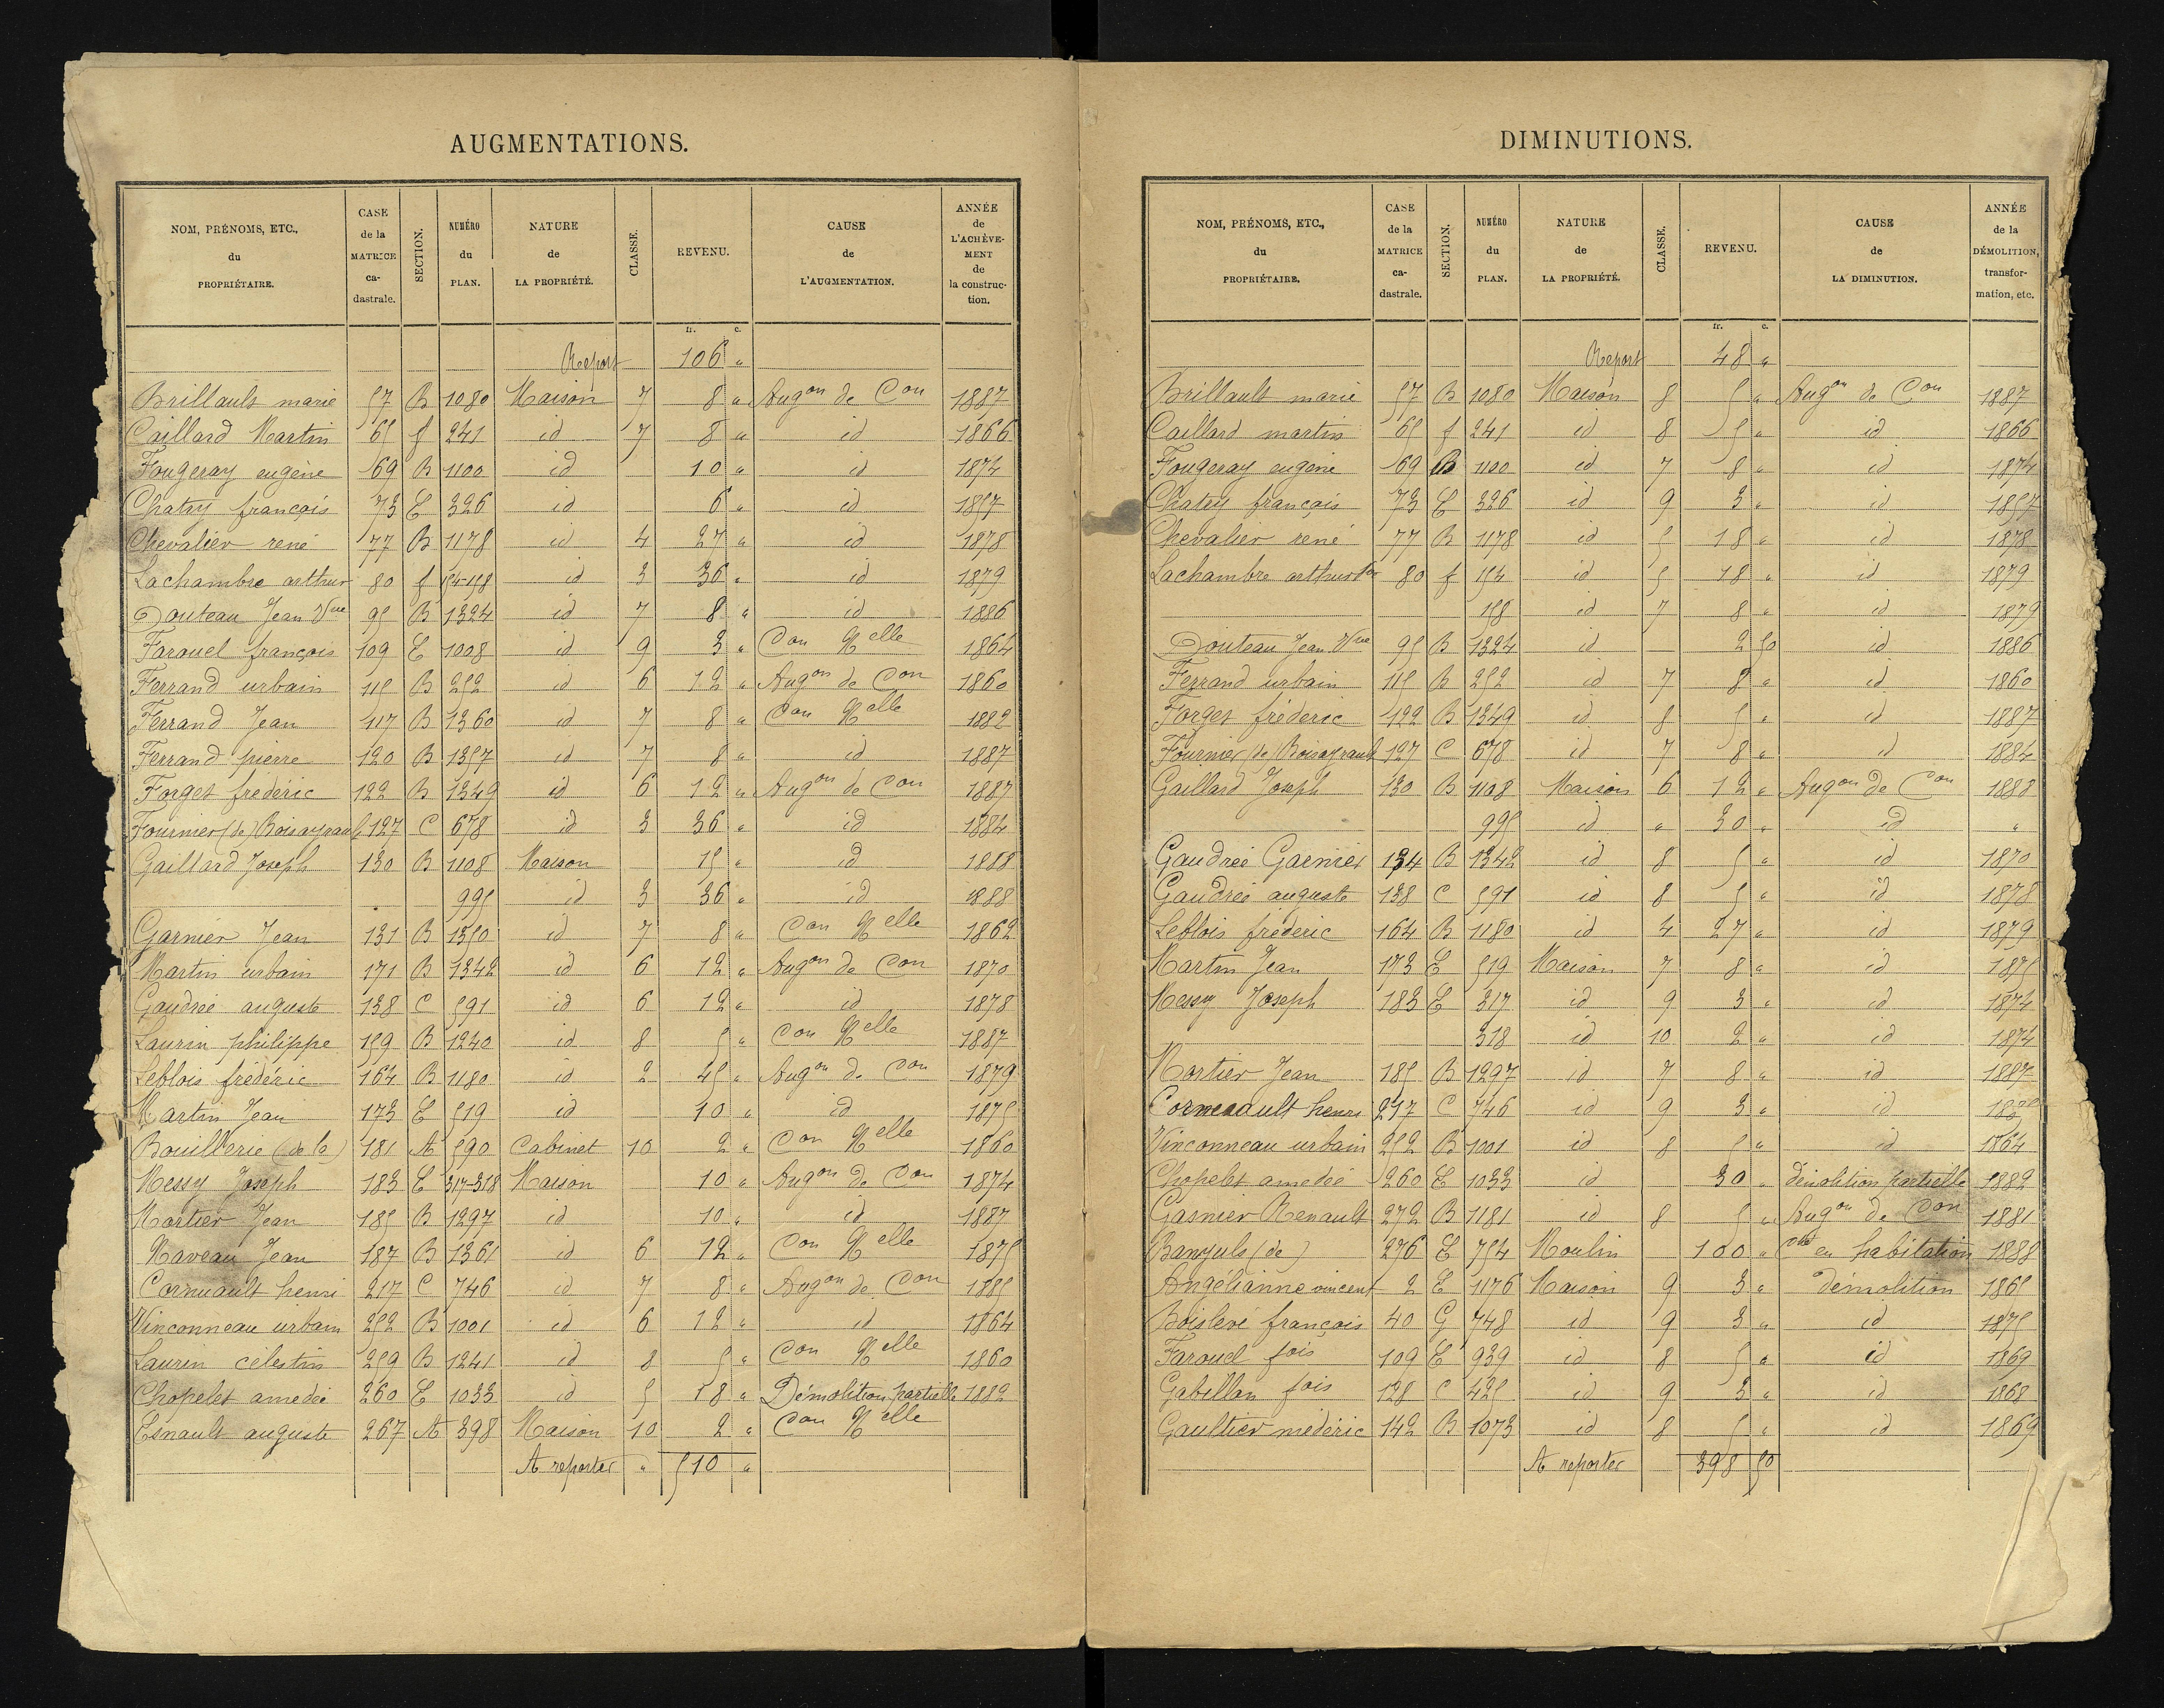 AUGMENTATIONS.
NOM, PRÉNOMS, ETC., du PROPRIÉTAIRE. CASE de la MATRICE ca-dastrale. SECTION. NUMÉRO du PLAN. NATURE de LA PROPRIÉTÉ. CLASSE. REVENU. CAUSE de L'AUGMENTATION. ANNÉE de L'ACHÈVE-MENT de la construc-tion.
fr. c.
Report 106 "
Brillault marie 57 B 1080 Maison 7 8 " Augon de Con 1887
Caillard Martin 65 f 241 id 7 8 " id 1866
Fougeray eugène 69 B 1100 id 10 " id 1874
Chatry françois 73 E 326 id 6 " id 1857
Chevalier rené 77 B 1178 id 4 27 " id 1878
Lachambre arthur 80 f 154-158 id 3 36 " id 1879
Douteau Jean Vve 95 B 1324 id 7 8 " id 1886
Farouel françois 109 E 1008 id 9 3 " Con Nelle 1864
Ferrand urbain 115 B 252 id 6 12 " Augon de Con 1860
Ferrand Jean 117 B 1360 id 7 8 " Con Nelle 1882
Ferrand pierre 120 B 1357 id 7 8 " id 1887
Forget frédéric 122 B 1349 id 6 12 " Augon de Con 1887
Fournier (de) Boisayrault 127 C 678 id 3 36 " id 1884
Gaillard Joseph 130 B 1108 Maison 15 " id 1888
995 id 3 36 " id 1888
Garnier Jean 131 B 1350 id 7 8 " Con Nelle 1862
Martin urbain 171 B 1342 id 6 12 " Augon de Con 1870
Gaudrée auguste 138 C 591 id 6 12 " id 1878
Laurin philippe 159 B 1240 id 8 5 " Con Nelle 1887
Leblois frédéric 164 B 1180 id 2 45 " Augon de Con 1879
Martin Jean 173 E 519 id 10 " id 1875
Bouillerie (de la) 181 A 590 Cabinet 10 2 " Con Nelle 1860
Messy Joseph 183 E 317-318 Maison 10 " Augon de Con 1874
Mortier Jean 185 B 1297 id 10 " id 1887
Naveau Jean 187 B 1361 id 6 12 " Con Nelle 1875
Cornuault henri 217 C 746 id 7 8 " Augon de Con 1885
Vinconneau urbain 252 B 1001 id 6 12 " id 1864
Laurin célestin 259 B 1241 id 8 5 " Con Nelle 1860
Chopelet amedée 260 E 1033 id 5 18 " Démolition partielle 1882
Esnault auguste 267 A 398 Maison 10 2 " Con Nelle
A reporter " 510 "
DIMINUTIONS.
NOM, PRÉNOMS, ETC., du PROPRIÉTAIRE. CASE de la MATRICE ca-dastrale. SECTION. NUMÉRO du PLAN. NATURE de LA PROPRIÉTÉ. CLASSE. REVENU. CAUSE de LA DIMINUTION. ANNÉE de la DÉMOLITION, transfor-mation, etc.
fr. c.
Report 48 "
Brillault marie 57 B 1080 Maison 8 5 " Augon de Con 1887
Caillard martin 65 f 241 id 8 5 " id 1866
Fougeray eugène 69 B 1100 id 7 8 " id 1874
Chatry françois 73 E 326 id 9 3 " id 1857
Chevalier rené 77 B 1178 id 5 18 " id 1878
Lachambre arthur 80 f 154 id 5 18 " id 1879
158 id 7 8 " id 1879
Douteau Jean Vve 95 B 1324 id 2 50 id 1886
Ferrand urbain 115 B 252 id 7 8 " id 1860
Forget fréderic 122 B 1349 id 8 5 " id 1887
Fournier (de) Boisayrault 127 C 678 id 7 8 " id 1884
Gaillard Joseph 130 B 1108 Maison 6 12 " Augon de Con 1888
995 id " 30 " id "
Gaudrée Garnier 134 B 1342 id 8 5 " id 1870
Gaudrée auguste 138 C 591 id 8 5 " id 1878
Leblois fréderic 164 B 1180 id 4 27 " id 1879
Martin Jean 173 E 519 Maison 7 8 " id 1875
Messy Joseph 183 E 317 id 9 3 " id 1874
318 id 10 2 " id 1874
Mortier Jean 185 B 1297 id 7 8 " id 1887
Cornuault henri 217 C 746 id 9 3 " id
Vinconneau urbain 252 B 1001 id 8 5 " id 1864
Chopelet amedée 260 E 1033 id 30 " démolition partielle 1882
Gasnier Renault 272 B 1181 id 8 5 " Augon de Con 1881
Banyuls (de) 276 E 754 Moulin 100 " en habitation 1888
Angélianne vincent 2 E 1176 Maison 9 3 " démolition 1865
Boislevé françois 40 G 748 id 9 3 " id 1875
Farouel fois 109 E 939 id 8 5 " id 1869
Gabillan fois 128 C 425 id 9 3 " id 1868
Gaultier médéric 142 B 1073 id 8 5 " id 1869
A reporter 398 50